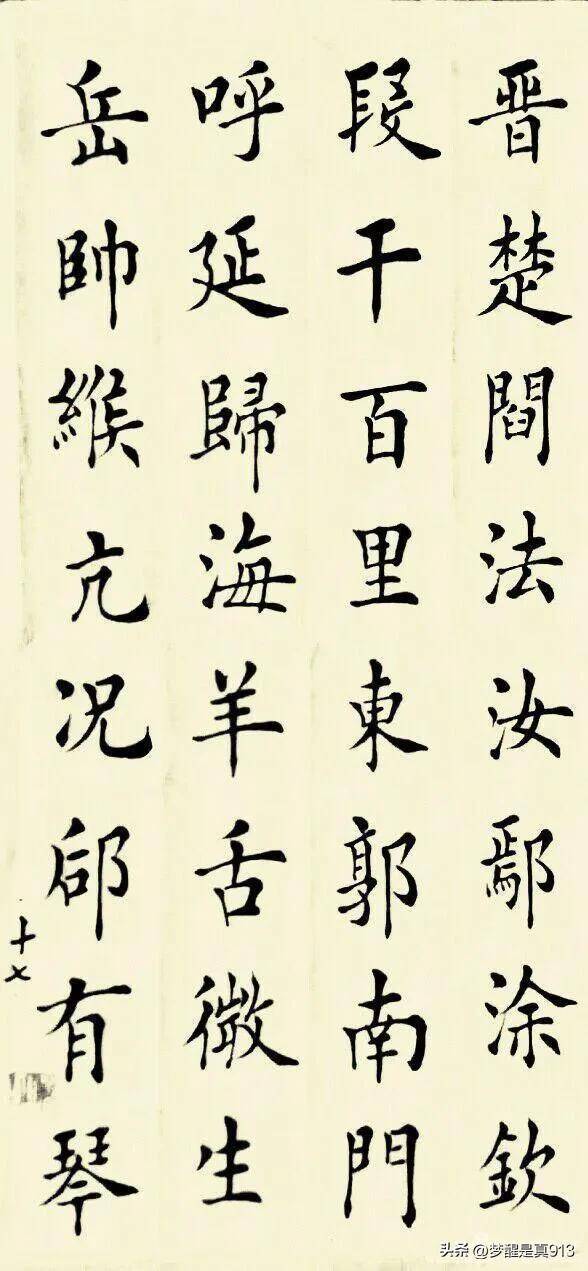 晋楚閻法汝鄢涂欽
段干百里東郭南門
呼延歸海羊舌微生
岳帥緱亢况郈有琴
十七
头条 @梦醒是真913